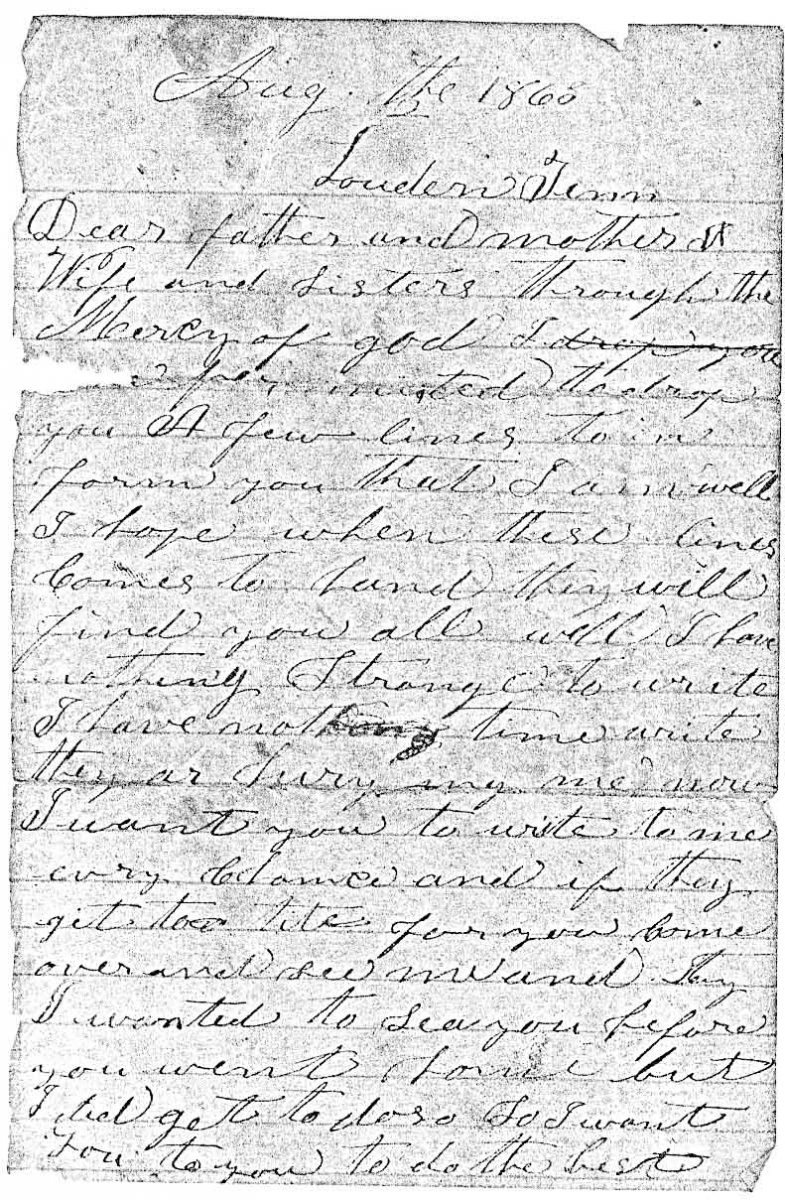 Aug. the 1863
Louden Tenn
Dear father and mother &
Wife and sisters through the
Mercy of god I drop you
permitted to drop
you A few lines to in
form you that I am well
I hope when these lines
Comes to hand they will
find you all well I have
nothing Strange to write
I have not time write
they ar hurying me now
I want you to write to me
evry Chance and if they
git too tite for you come
over and see me and
I wanted to sea you before
you went home but
I did get to do so So I want
you to you to do the best